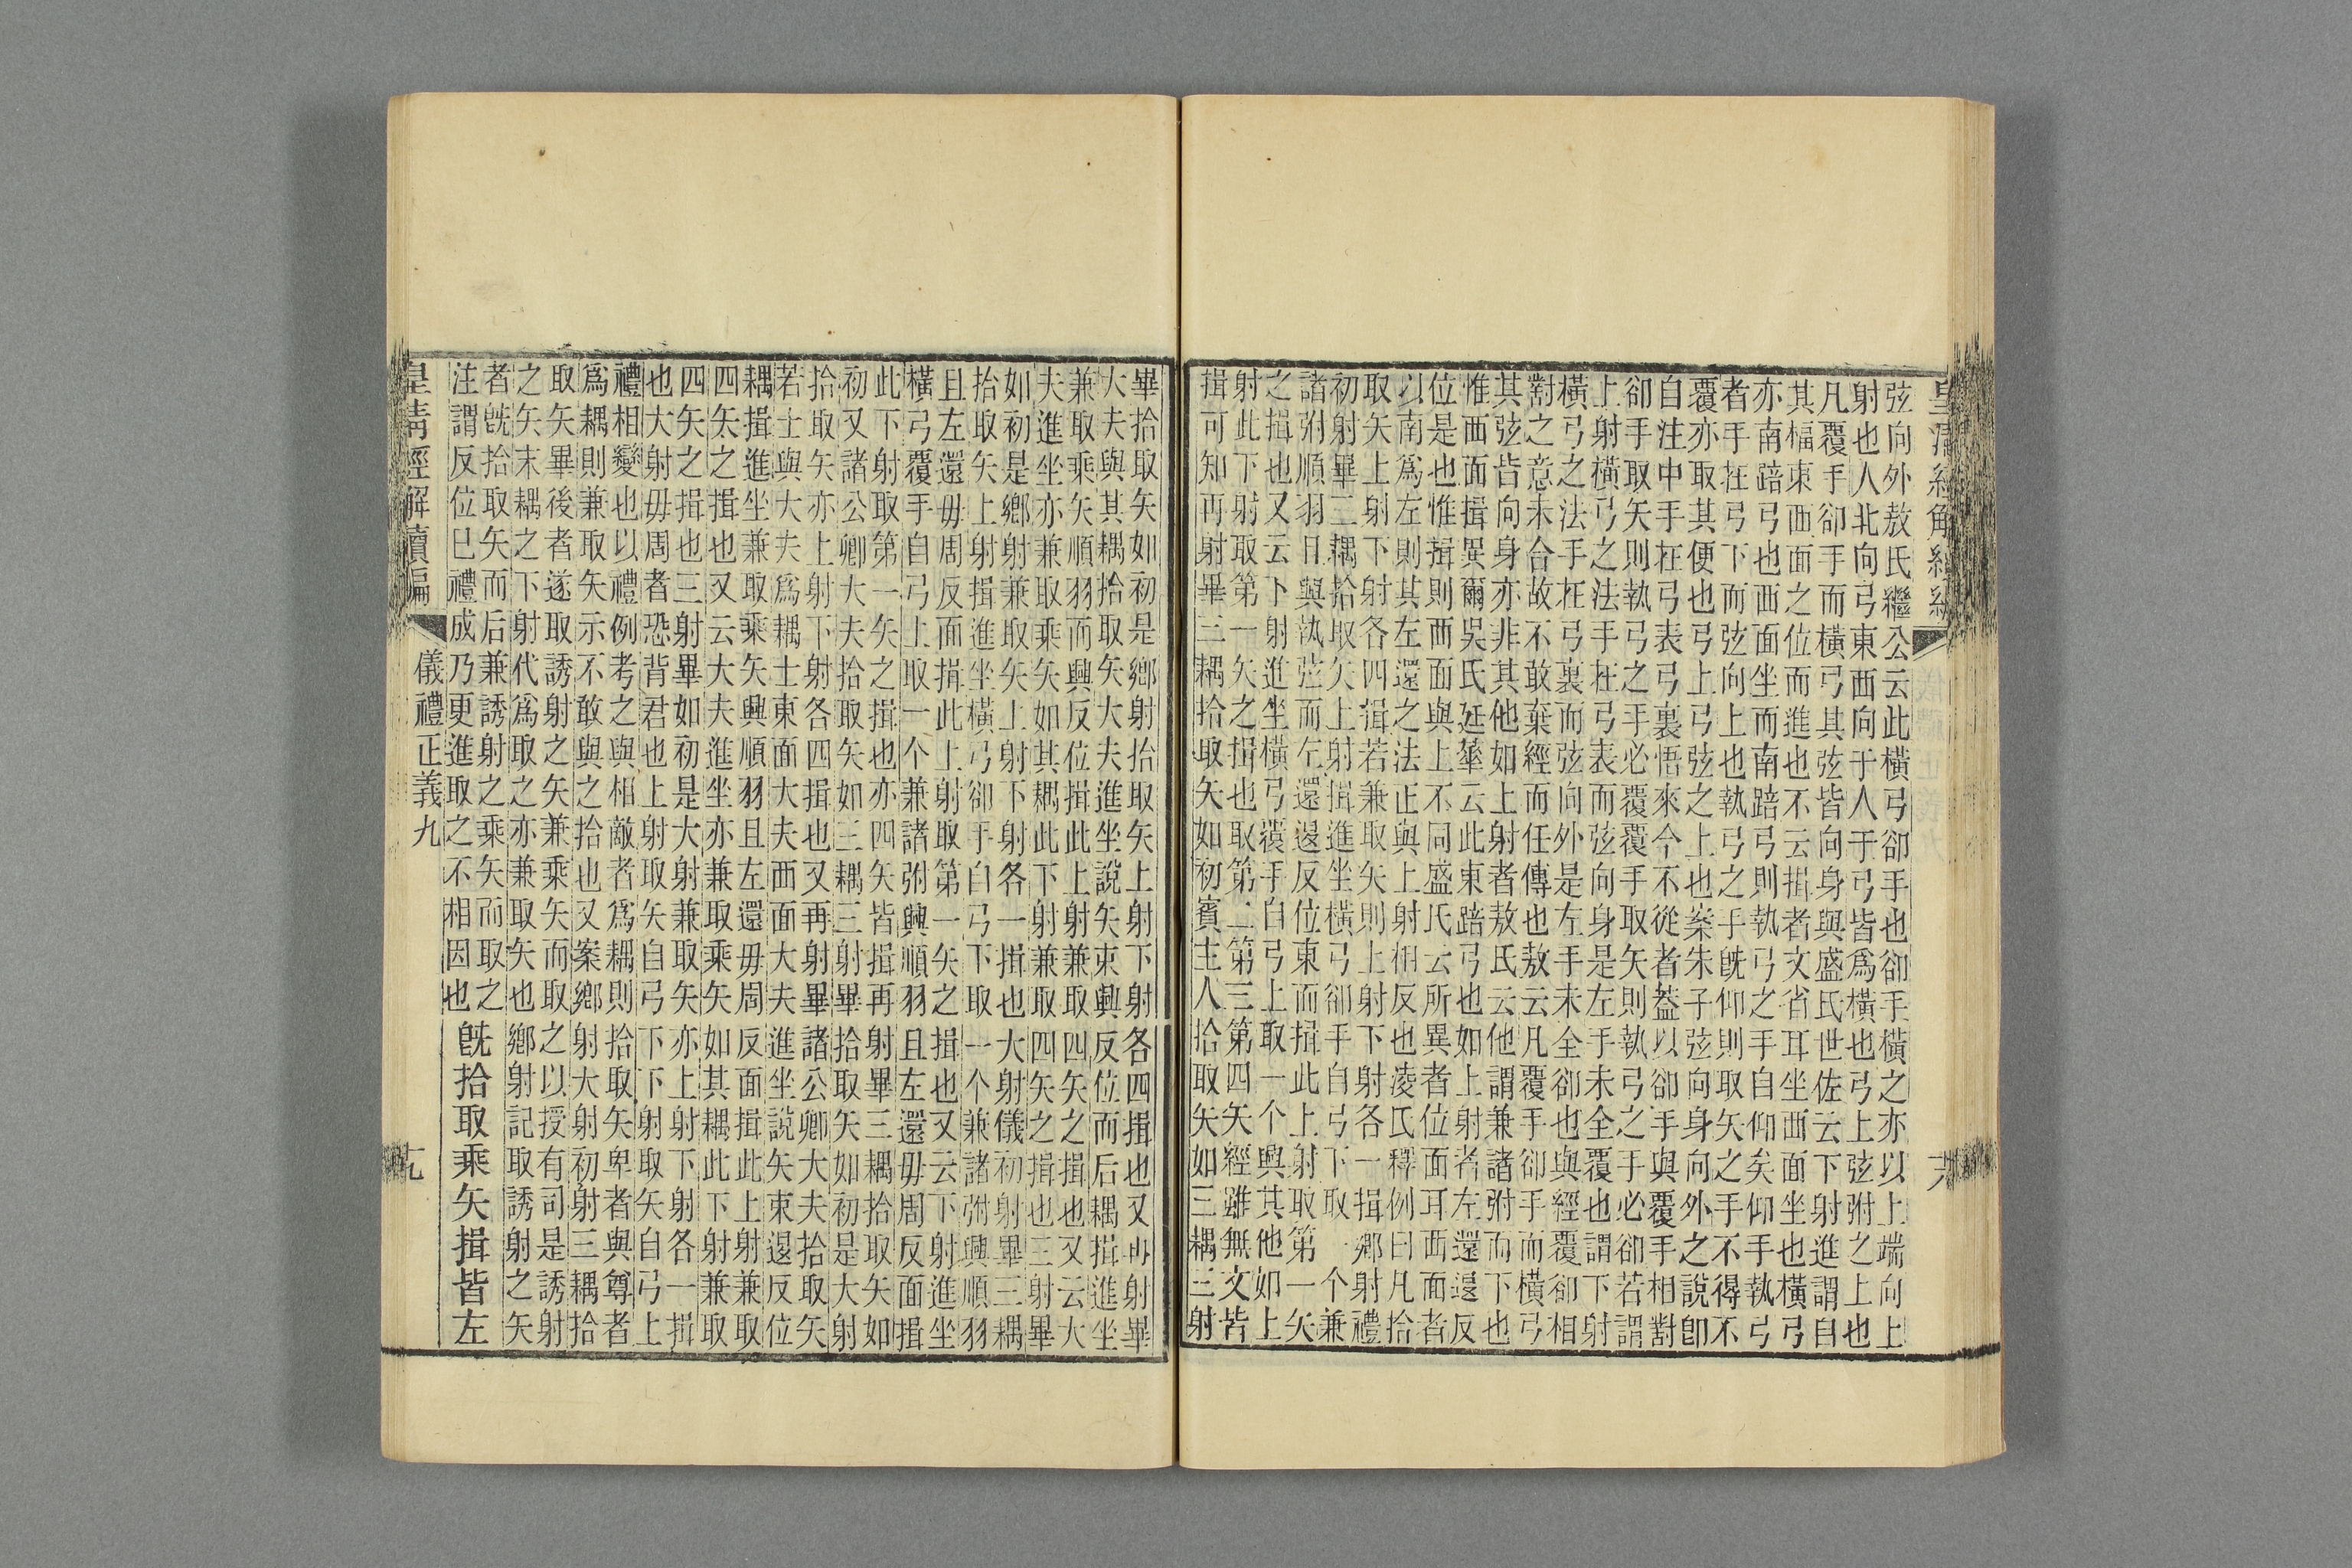 皇清經解續編
弦向外敖氏繼公云此橫弓卻手也卻手橫之亦以上端向上
射也人北向弓東西向于人于弓皆爲橫也弓上弦弣之上也
凡覆手卻手而橫弓其弦皆向身與盛氏世佐云下射進謂自
其楅東西面之位而進也不云揖者文省耳坐西面坐也橫弓
亦南踣弓也西面坐而南踣弓則執弓之手自仰矣仰手執弓
者手在弓下而弦向上也執弓之手旣仰則取矢之手不得不
覆亦取其便也弓上弓弦之上也案朱子弦向身向外之說卽
自注中手在弓表弓裏悟來今不從者蓋以卻手與覆手相對
卻手取矢則執弓之手必覆覆手取矢則執弓之手必卻若謂
上射橫弓之法手在弓表而弦向身是左手未全覆也謂下射
橫弓之法手在弓裏而弦向外是左手未全卻也與經覆卻相
對之意未合故不敢棄經而任傳也敖云凡覆手卻手而橫弓
其弦皆向身亦非其他如上射者敖氏云他謂兼諸弣而下也
惟西面揖異爾吳氏廷華云此東踣弓也如上射者左還退反
位是也惟揖則西面與上不同盛氏云所異者位面耳西面者
以南爲左則其左還之法正與上射相反也凌氏釋例曰凡拾
取矢上射下射各四揖若兼取矢則上射下射各一揖鄉射禮
初射畢三耦拾取矢上射揖進坐橫弓卻手自弓下取一个兼
諸弣順羽且與執弦而左還退反位東面揖此上射取第一矢
之揖也又云下射進坐橫弓覆手自弓上取一个興其他如上
射此下射取第一矢之揖也取第二第三第四矢經雖無文皆
揖可知再射畢三耦拾取矢如初賓主人拾取矢如三耦三射
畢拾取矢如初是鄉射拾取矢上射下射各四揖也又再射畢
大夫與其耦拾取矢大夫進坐說矢束興反位而后耦揖進坐
兼取乘矢順羽而興反位揖此上射兼取四矢之揖也又云大
夫進坐亦兼取乘矢如其耦此下射兼取四矢之揖也三射畢
如初是鄉射兼取矢上射下射各一揖也大射儀初射畢三耦
拾取矢上射揖進坐橫弓卻手自弓下取一个兼諸弣興順羽
且左還毋周反面揖此上射取第一矢之揖也又云下射進坐
橫弓覆手自弓上取一个兼諸弣興順羽且左還毋周反面揖
此下射取第一矢之揖也亦四矢皆揖再射畢三耦拾取矢如
初又諸公卿大夫拾取矢如三耦三射畢拾取矢如初是大射
拾取矢亦上射下射各四揖也又再射畢諸公卿大夫拾取矢
若士與大夫爲耦士東面大夫西面大夫進坐說矢束退反位
耦揖進坐兼取乘矢興順羽且左還毋周反面揖此上射兼取
四矢之揖也又云大夫進坐亦兼取乘矢如其耦此下射兼取
四矢之揖也三射畢如初是大射兼取矢亦上射下射各一揖
也大射毋周者恐背君也上射取矢自弓下下射取矢自弓上
禮相變也以禮例考之與相敵者爲耦則拾取矢卑者與尊者
爲耦則兼取矢示不敢與之拾也又案鄉射大射初射三耦拾
取矢畢後者遂取誘射之矢兼乘矢而取之以授有司是誘射
之矢末耦之下射代爲取之亦兼取矢也鄉射記取誘射之矢
者旣拾取矢而后兼誘射之乘矢而取之
注謂反位已禮成乃更進取之不相因也
旣拾取乘矢揖皆左
皇清經解續編 儀禮正義九